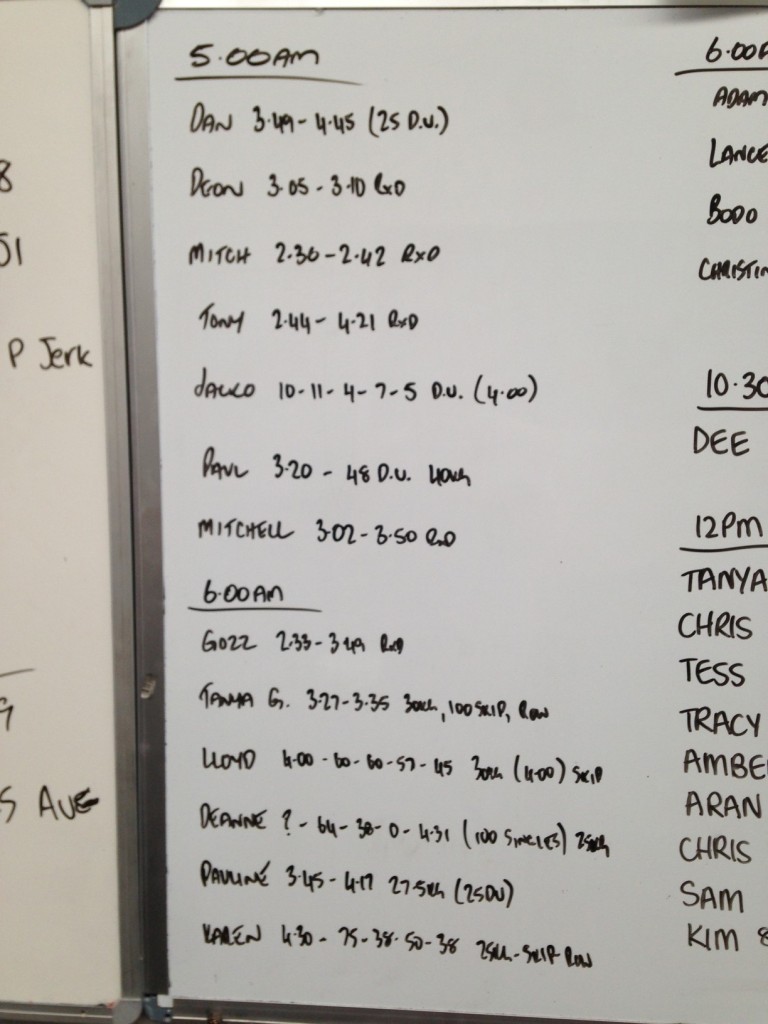 8
51
P Jerk
9
S AVE
5.00AM
DAN 3.49-4.45 (25 D.U.)
DEON 3.05-3.10 RxD
MITCH 2.36-2.42 RxD
TONY 2.44-4.21 RxD
JACKO 10-11-4-7-5 D.U. (4.00)
PAUL 3.20-48 D.U. 40KG
MITCHELL 3.02-3.50 RxD
6.00AM
GOZZ 2.33-3.49 RxD
TANYA G. 3.27-3.35 30KG, 100 SKIP, ROW
LLOYD 4.00-60-60-57-45 30KG (4.00) SKIP
DEANNE ?-64-38-0-4.31 (100 SINGLES) 25KG
PAULINE 3.45-4.17 27.5KG (25DU)
KAREN 4.30-75-38-50-38 25KG-SKIP-ROW
6.00A
ADAM
LANCE
BODO
CHRISTIN
10.30
DEE
12PM
TANYA
CHRIS
TESS
TRACY
AMBE
ARAN
CHRIS
SAM
KIM